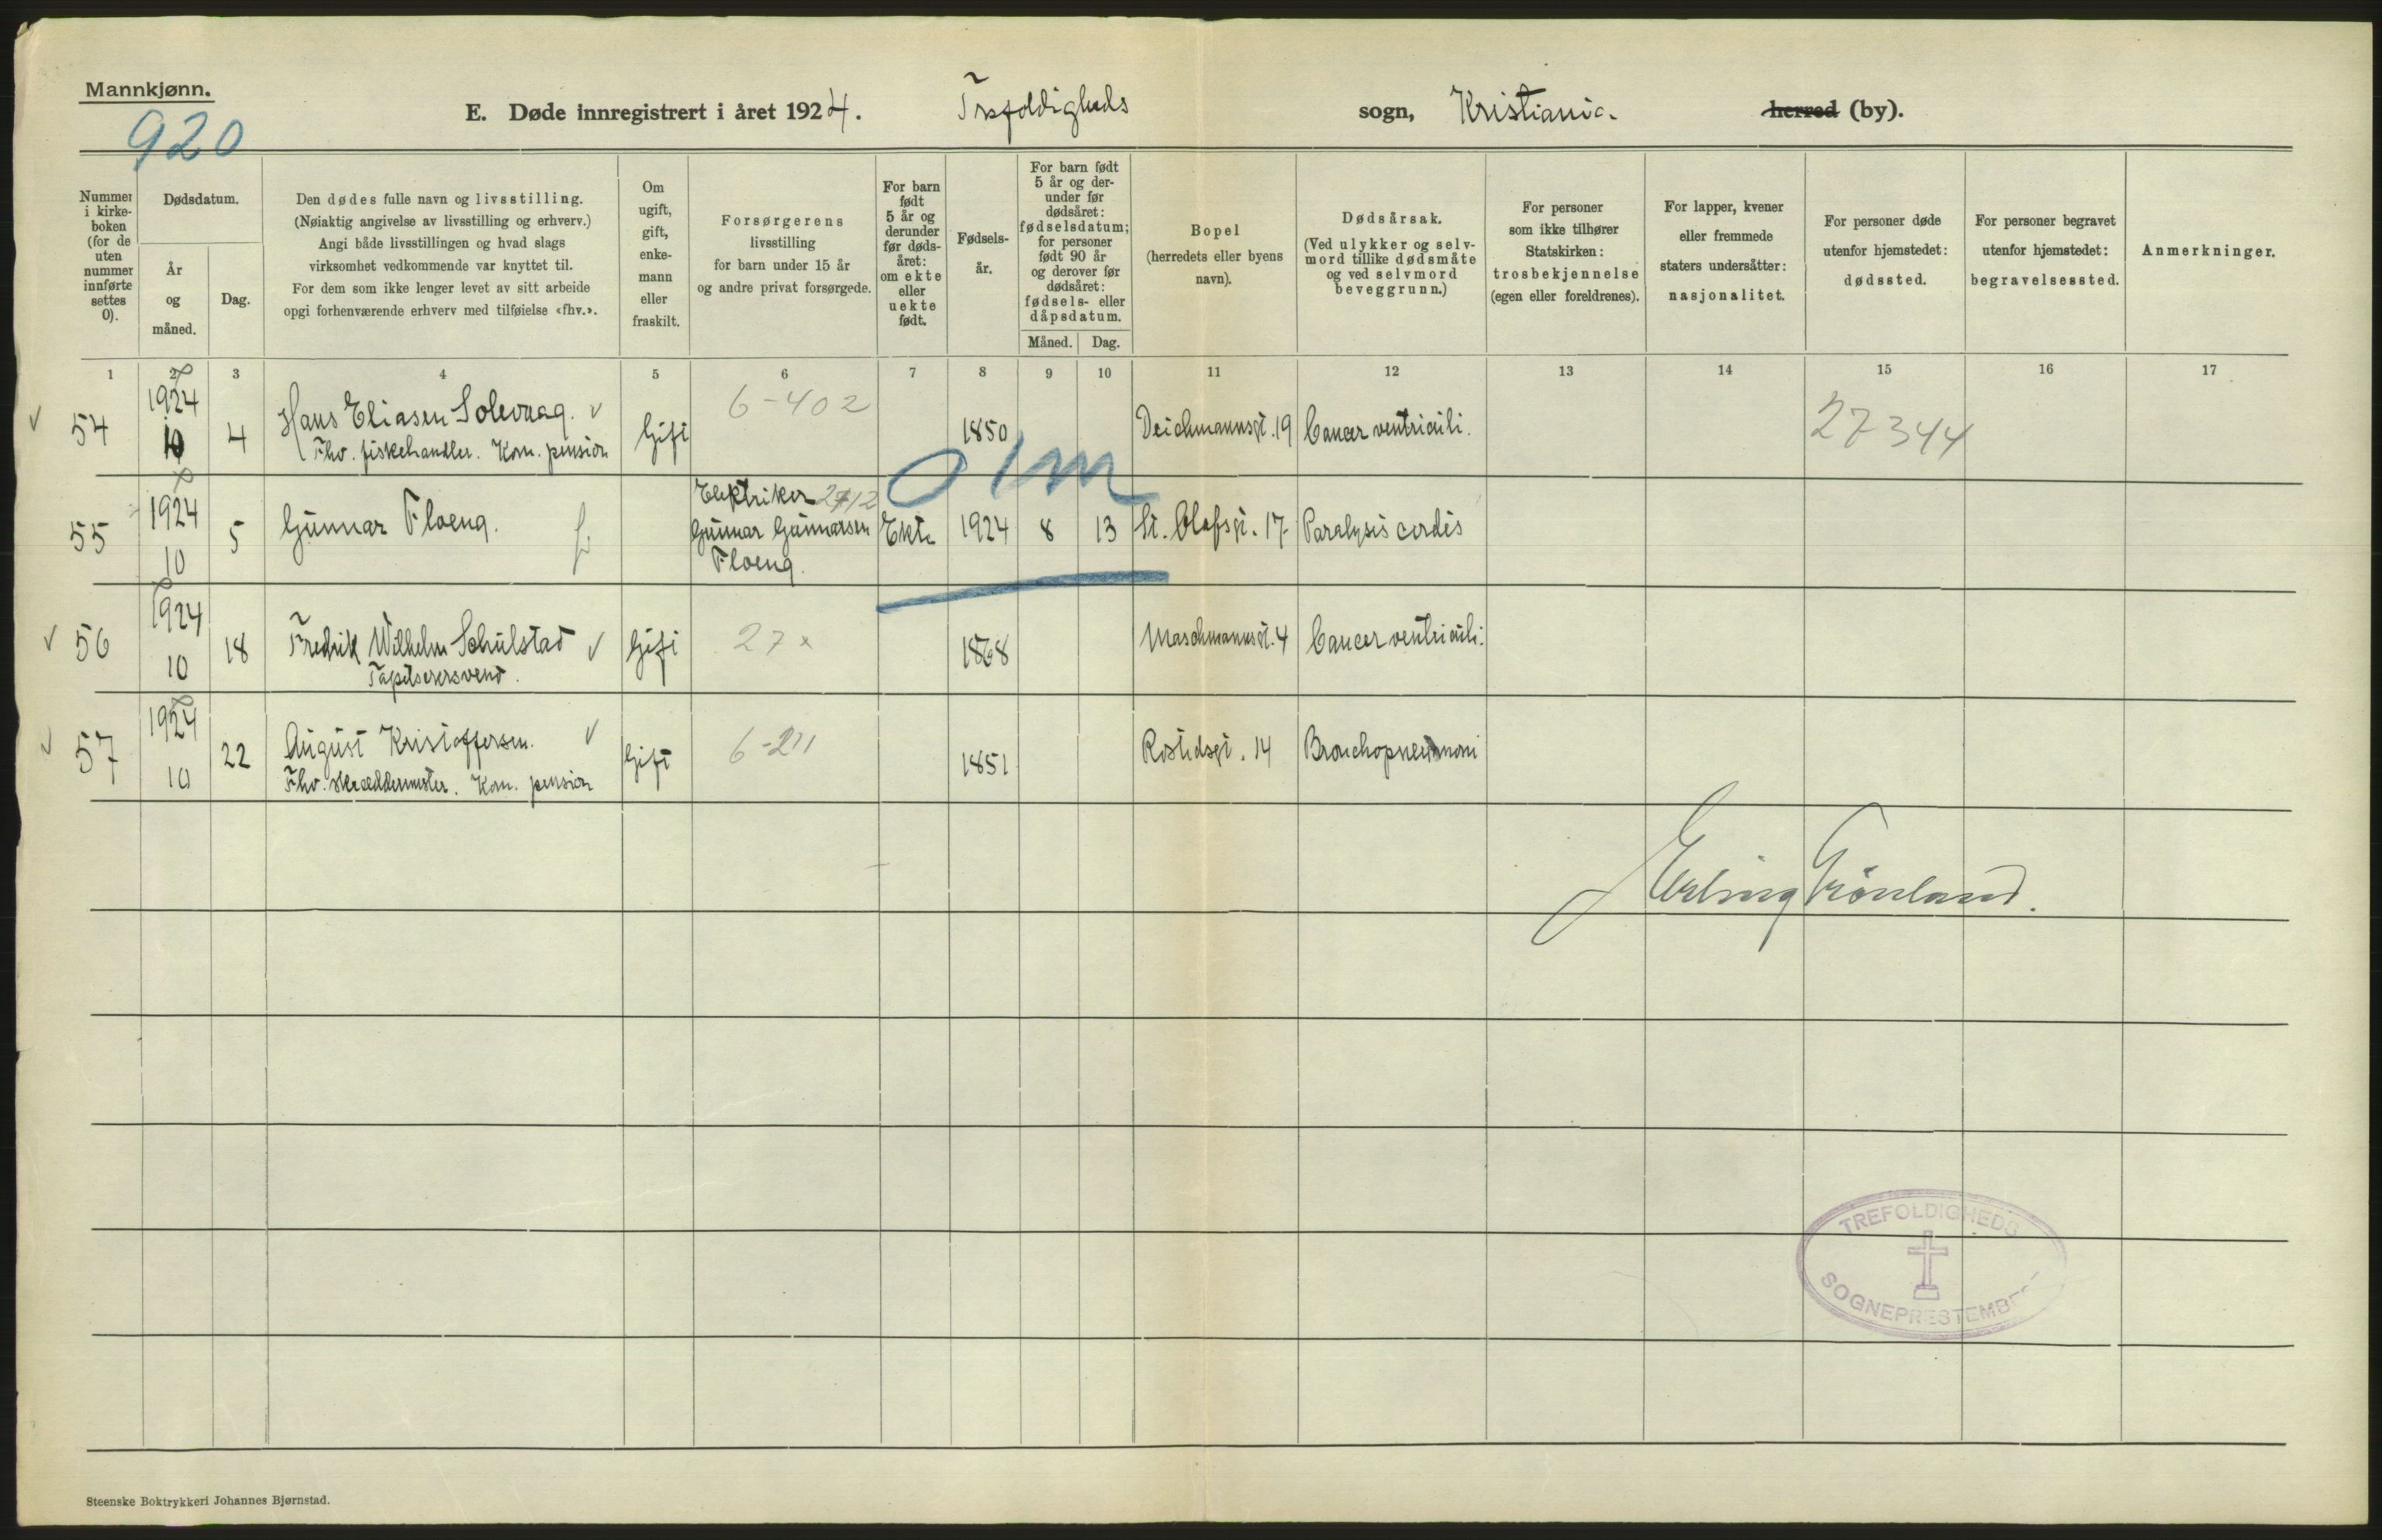 Mannkjønn.
920
E. Døde innregistrert i året 1924. Trefoldigheds sogn, Kristiania. herred (by).
Nummer i kirkeboken (for de uten nummer innførte settes 0).
Dødsdatum.
År og måned.
Dag.
Den dødes fulle navn og livsstilling.
(Nøiaktig angivelse av livsstilling og erhverv.)
Angi både livsstillingen og hvad slags
virksomhet vedkommende var knyttet til.
For dem som ikke lenger levet av sitt arbeide
opgi forhenværende erhverv med tilføielse «fhv.».
Om ugift, gift, enkemann eller fraskilt.
Forsørgerens
livsstilling
for barn under 15 år
og andre privat forsørgede.
For barn født 5 år og derunder før dødsåret: om ekte eller uekte født.
Fødselsår.
For barn født 5 år og derunder før dødsåret: fødselsdatum; for personer født 90 år og derover før dødsåret: fødsels- eller dåpsdatum.
Måned. Dag.
Bopel
(herredets eller byens
navn).
Dødsårsak.
(Ved ulykker og selvmord tillike dødsmåte og ved selvmord beveggrunn.)
For personer
som ikke tilhører
Statskirken:
trosbekjennelse
(egen eller foreldrenes).
For lapper, kvener
eller fremmede
staters undersåtter:
nasjonalitet.
For personer døde
utenfor hjemstedet:
dødssted.
For personer begravet
utenfor hjemstedet:
begravelsessted.
Anmerkninger.
1 2 3 4 5 6 7 8 9 10 11 12 13 14 15 16 17
54 1924 10 4 Hans Eliasen Solevaag. Gift 6-402 1850 Deichmannsgt. 19 Cancer ventriculi. 27344
Fhv. fiskehandler. Kom. pension
0 1m
55 1924 10 5 Gunnar Floeng. Elektriker 2712 Gunnar Gunnarsen Floeng. Ekte 1924 8 13 St. Olafsgt. 17 Paralysis cordis
56 1924 10 18 Fredrik Wilhelm Schulstad Gift 27x 1868 Maschmannsgt. 4 Cancer ventriculi.
Tapetserersvend.
57 1924 10 22 August Kristoffersen. Gift 6-211 1851 Rostedsgt. 14 Bronchopneumoni
Fhv. skræddermester. Kom. pension
Erling Grönland.
TREFOLDIGHEDS
SOGNEPRESTEMBE
Steenske Boktrykkeri Johannes Bjørnstad.